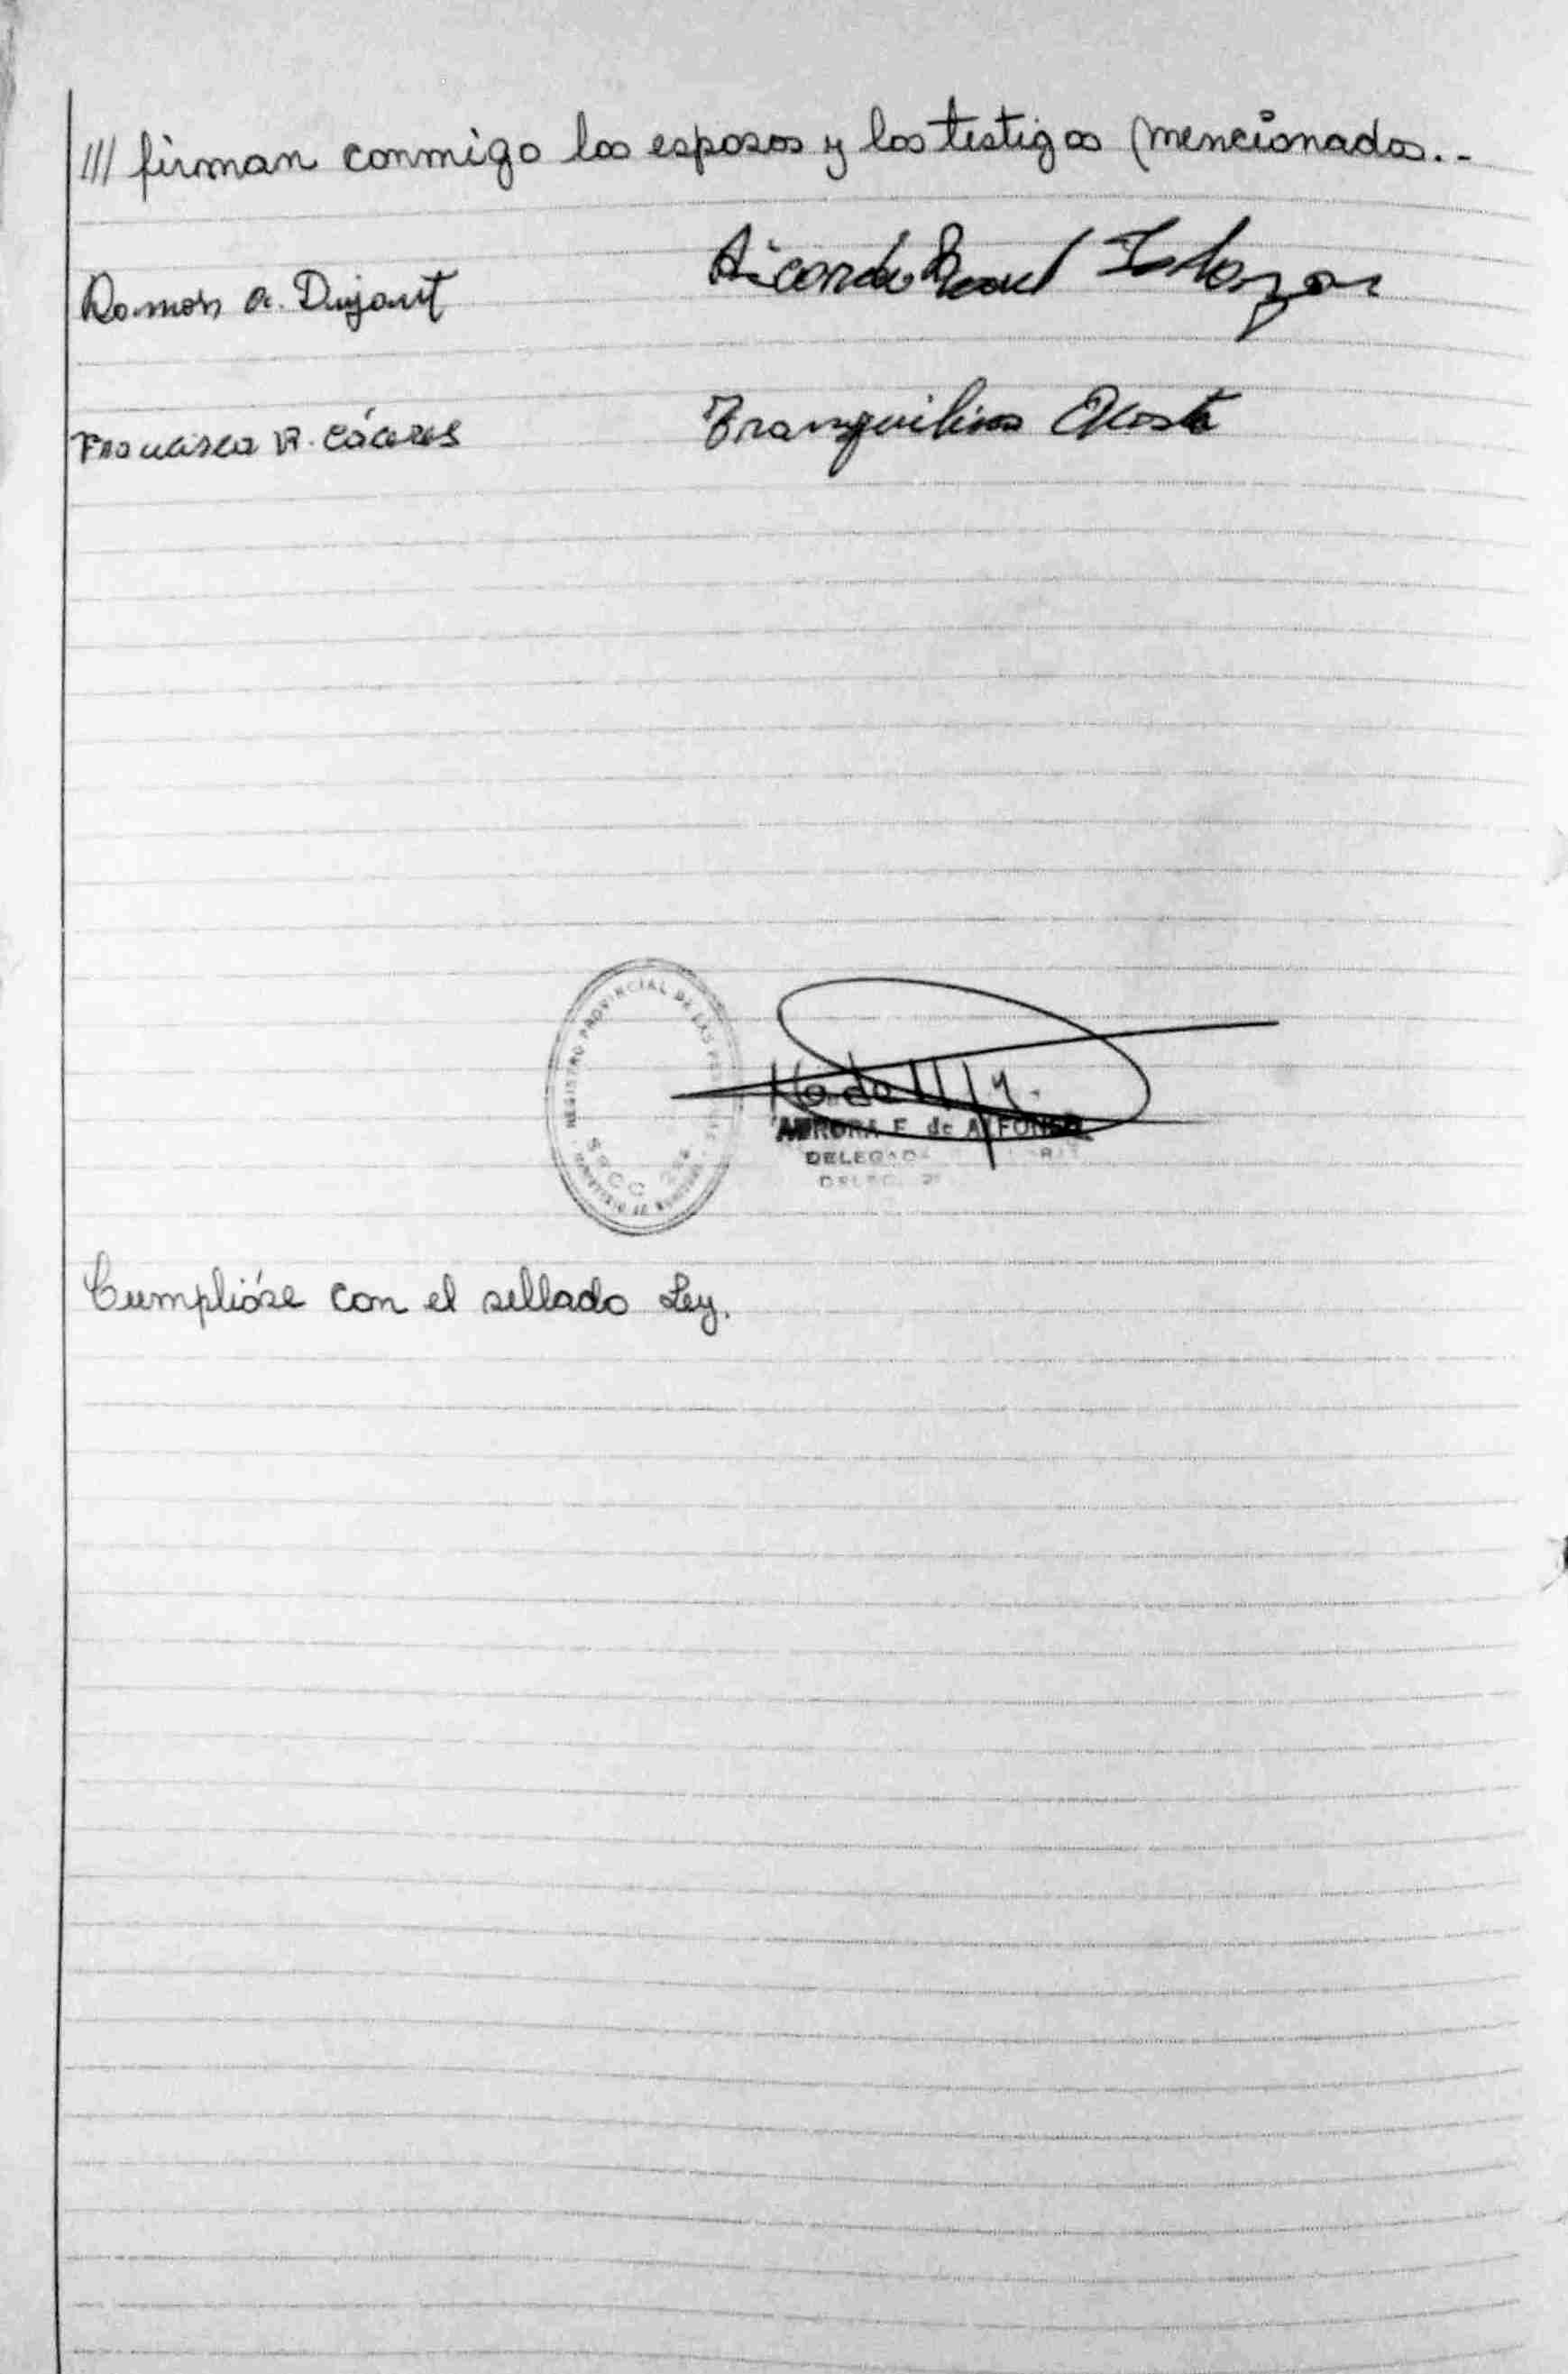 /// firman conmigo los esposos y los testigos mencionados..-
Ramón A. Dujaut
Ricardo Raul
Francisca R. Cáceres
Tranquilino Acosta
REGISTRO PROVINCIAL DE LAS
AURORA E. de ALFONSO
DELEGADA
Cumplióse con el sellado Ley.